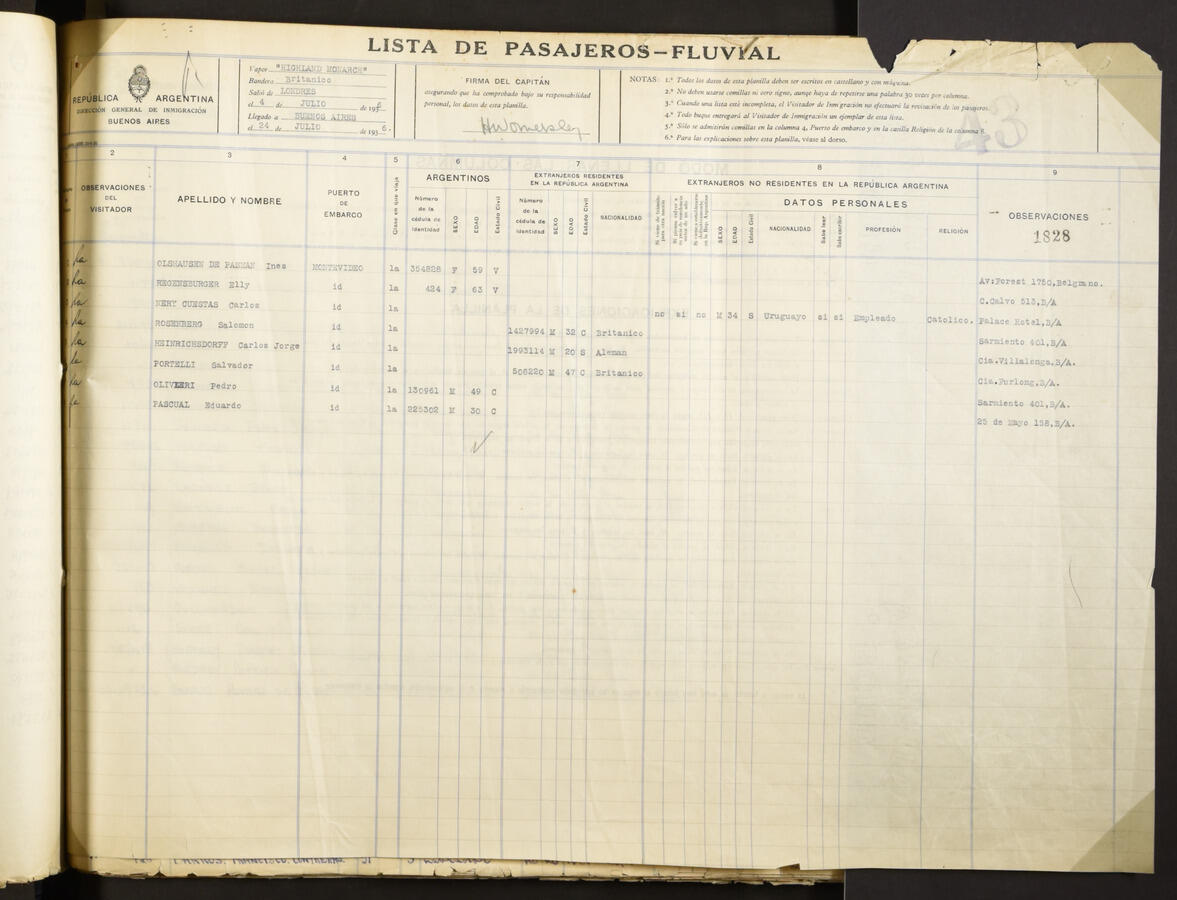 LISTA DE PASAJEROS-FLUVIAL
REPÚBLICA ARGENTINA
DIRECCIÓN GENERAL DE INMIGRACIÓN
BUENOS AIRES
Vapor "HIGHLAND MONARCH"
Bandera Britanico
Salió de LONDRES
el 4 de JULIO de 1936
Llegado a BUENOS AIRES
el 24 de JULIO de 1936.
FIRMA DEL CAPITÁN
asegurando que ha comprobado bajo su responsabilidad
personal, los datos de esta planilla.
NOTAS: 1.ª Todos los datos de esta planilla deben ser escritos en castellano y con máquina.
2.ª No deben usarse comillas ni otro signo, aunque haya de repetirse una palabra 30 veces por columna.
3.ª Cuando una lista esté incompleta, el Visitador de Inmigración no efectuará la revisación de los pasajeros.
4.ª Todo buque entregará al Visitador de Inmigración un ejemplar de esta lista.
5.ª Sólo se admitirán comillas en la columna 4, Puerto de embarco y en la casilla Religión de la columna 8.
6.ª Para las explicaciones sobre esta planilla, véase al dorso.
43
2 3 4 5 6 7 8 9
OBSERVACIONES DEL VISITADOR
APELLIDO Y NOMBRE
PUERTO DE EMBARCO
Clase en que viaja
ARGENTINOS
Número de la cédula de identidad
SEXO
EDAD
Estado Civil
EXTRANJEROS RESIDENTES EN LA REPÚBLICA ARGENTINA
Número de la cédula de identidad
SEXO
EDAD
Estado Civil
NACIONALIDAD
EXTRANJEROS NO RESIDENTES EN LA REPÚBLICA ARGENTINA
DATOS PERSONALES
SEXO
EDAD
Estado Civil
NACIONALIDAD
Sabe leer
Sabe escribir
PROFESIÓN
RELIGIÓN
OBSERVACIONES
1828
OLSHAUSEN DE PASMAN Ines MONTEVIDEO 1a 354828 F 59 V Av:Forest 1750,Belgrano.
REGENSBURGER Elly id 1a 424 F 63 V C.Calvo 513,B/A
NERY CUESTAS Carlos id 1a no si no M 34 S Uruguayo si si Empleado Catolico. Palace Hotel,B/A
ROSENBERG Salomon id 1a 1427994 M 32 C Britanico Sarmiento 401,B/A
HEINRICHSDORFF Carlos Jorge id 1a 1993114 M 20 S Aleman Cia.Villalonga,B/A.
PORTELLI Salvador id 1a 506220 M 47 C Britanico Cia.Furlong,B/A.
OLIVIERI Pedro id 1a 130961 M 49 C Sarmiento 401,B/A.
PASCUAL Eduardo id 1a 225302 M 30 C 25 de Mayo 158,B/A.